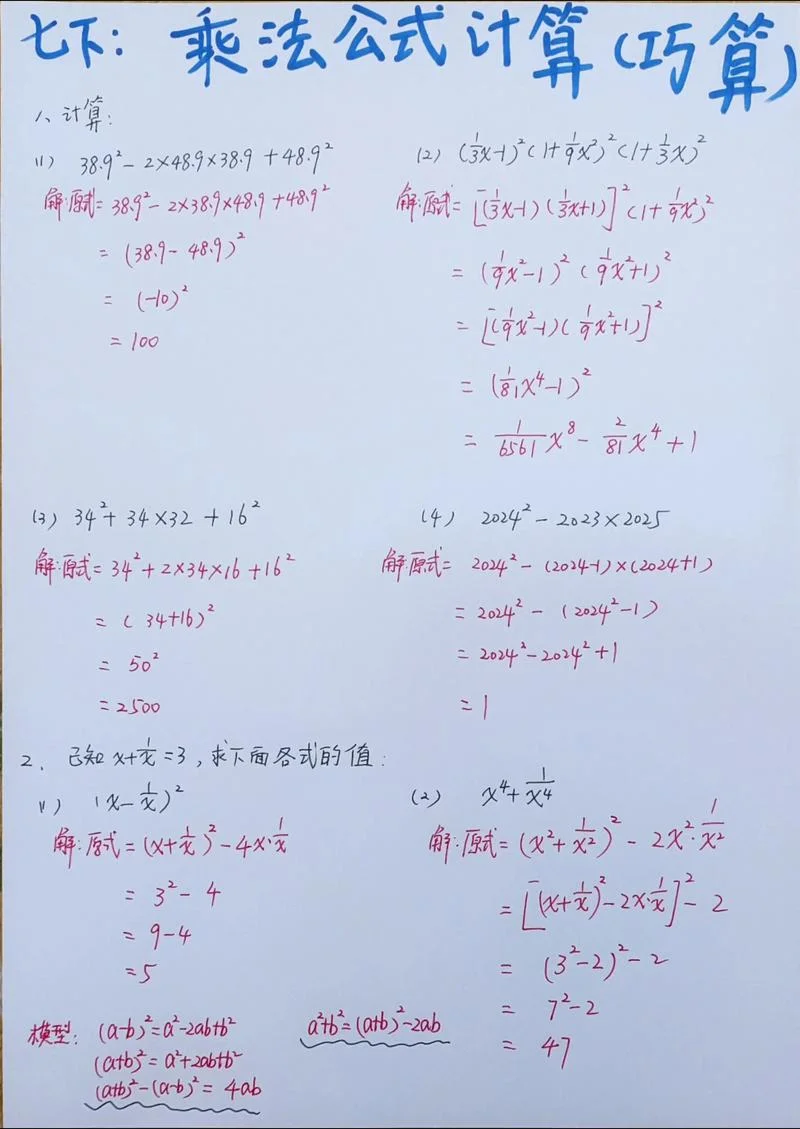 七下：乘法公式计算(巧算)
1、计算：
(1) 38.9²-2×48.9×38.9+48.9²
解：原式=38.9²-2×38.9×48.9+48.9²
=(38.9-48.9)²
=(-10)²
=100
(2) (1/3x-1)²(1+1/9x²)²(1+1/3x)²
解：原式=[(1/3x-1)(1/3x+1)]²(1+1/9x²)²
=(1/9x²-1)²(1/9x²+1)²
=[(1/9x²-1)(1/9x²+1)]²
=(1/81x⁴-1)²
=1/6561x⁸-2/81x⁴+1
(3) 34²+34×32+16²
解：原式=34²+2×34×16+16²
=(34+16)²
=50²
=2500
(4) 2024²-2023×2025
解：原式=2024²-(2024-1)×(2024+1)
=2024²-(2024²-1)
=2024²-2024²+1
=1
2、已知x+1/x=3,求下面各式的值：
(1) (x-1/x)²
解：原式=(x+1/x)²-4x·1/x
=3²-4
=9-4
=5
(2) x⁴+1/x⁴
解：原式=(x²+1/x²)²-2x²·1/x²
=[(x+1/x)²-2x·1/x]²-2
=(3²-2)²-2
=7²-2
=47
模型：(a-b)²=a²-2ab+b²
(a+b)²=a²+2ab+b²
(a+b)²-(a-b)²=4ab
a²+b²=(a+b)²-2ab